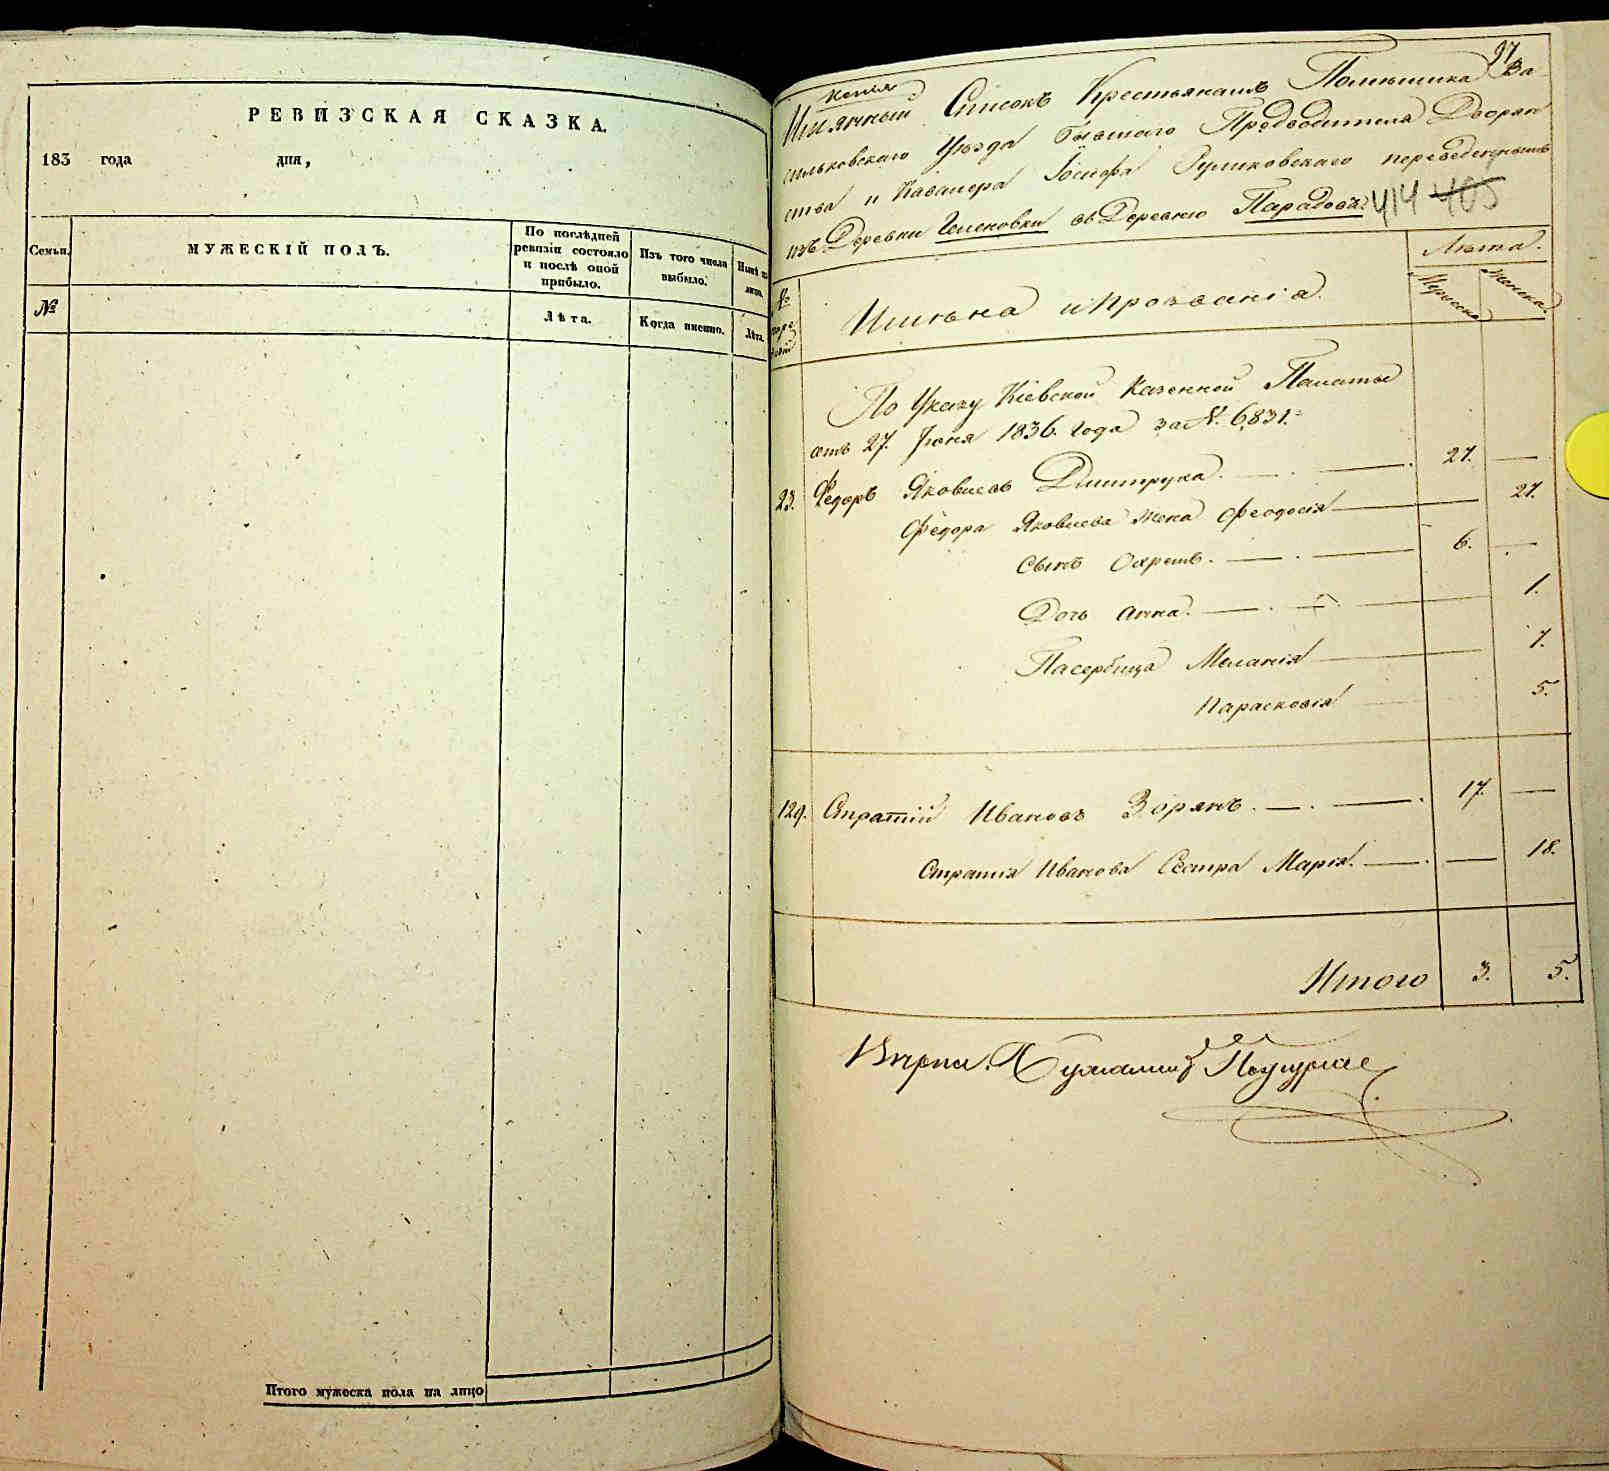 РЕВИЗСКАЯ СКАЗКА.
183 года дня,
Семьи.
МУЖЕСКІЙ ПОЛЪ.
По послѣдней ревизіи состояло и послѣ оной прибыло.
Изъ того числа выбыло.
Нынѣ на лицо.
№
Лѣта.
Когда именно.
Лѣта.
Итого мужеска пола на лицо
97
копія
Имянный Списокъ Крестьянамъ Помѣщика Ва-
сильковскаго Уѣзда бывшаго Предводителя Дворян
ства и Кавалера Іосифа Руликовскаго переведеннымъ
изъ Деревни Геленовки въ Деревню Парадовъ
414 405
Лѣта.
№
Имѣна и Прозванія.
Мужеска
женска
По Указу Кіевской Казенной Палаты
отъ 27. Іюня 1836. Года за №. 6,831.
23. Федоръ Яковлевъ Дмитрука. 27.
Федора Яковлева жена Феодосія 27.
Сынъ Охремъ. 6.
Дочь Анна. 1.
Пасербица Меланія 7.
Парасковія 5.
129. Стратій Ивановъ Зорянъ. 17.
Стратія Иванова Сестра Марія. 18.
Итого 3. 5.